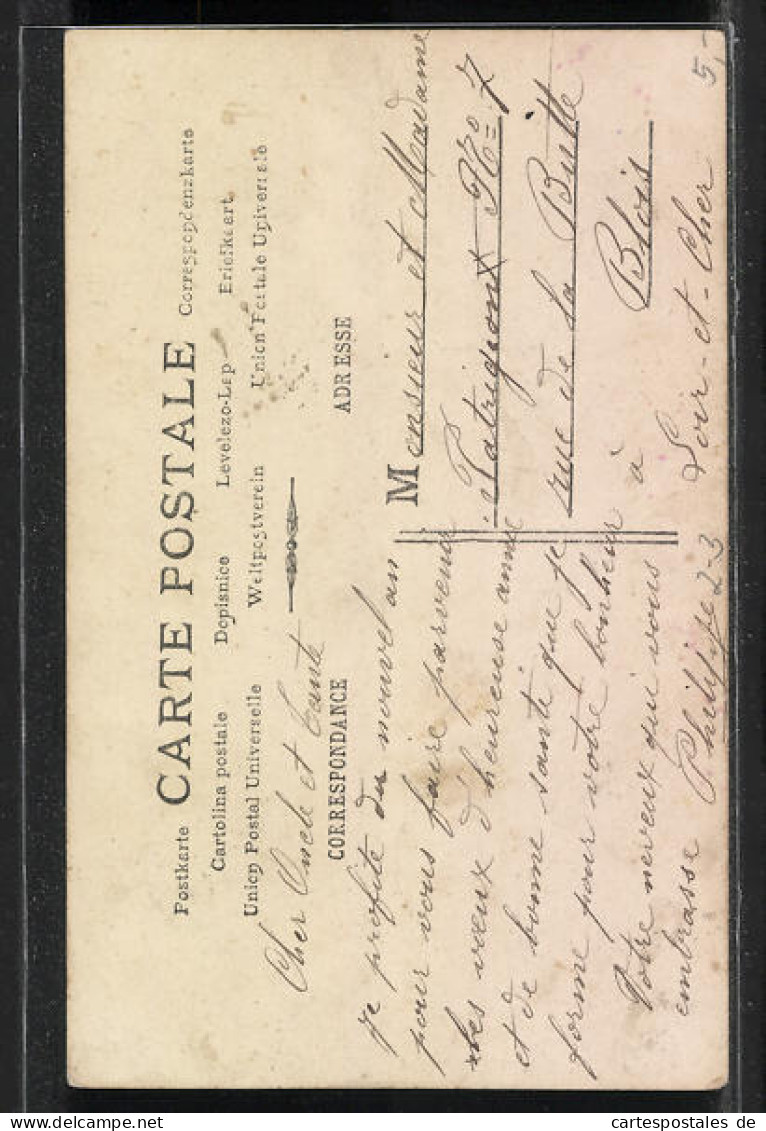 Postkarte CARTE POSTALE Correspondenzkarte
Cartolina postale Dopisnice Levelezo-Lap Briefkaart
Union Postal Universelle Weltpostverein Union Postale Universale
CORRESPONDANCE
ADRESSE
Cher Oncle et Tante
je profite du nouvel an
pour vous faire parvenir
mes vœux d'heureuse année
et de bonne santé que je
forme pour votre bonheur
Votre neveux qui vous
embrasse Philippe
Monsieur et Madame
Patrigeont No 7
rue de la Butte
à Blois
Loir-et-Cher
23
5,-
cartespostales de